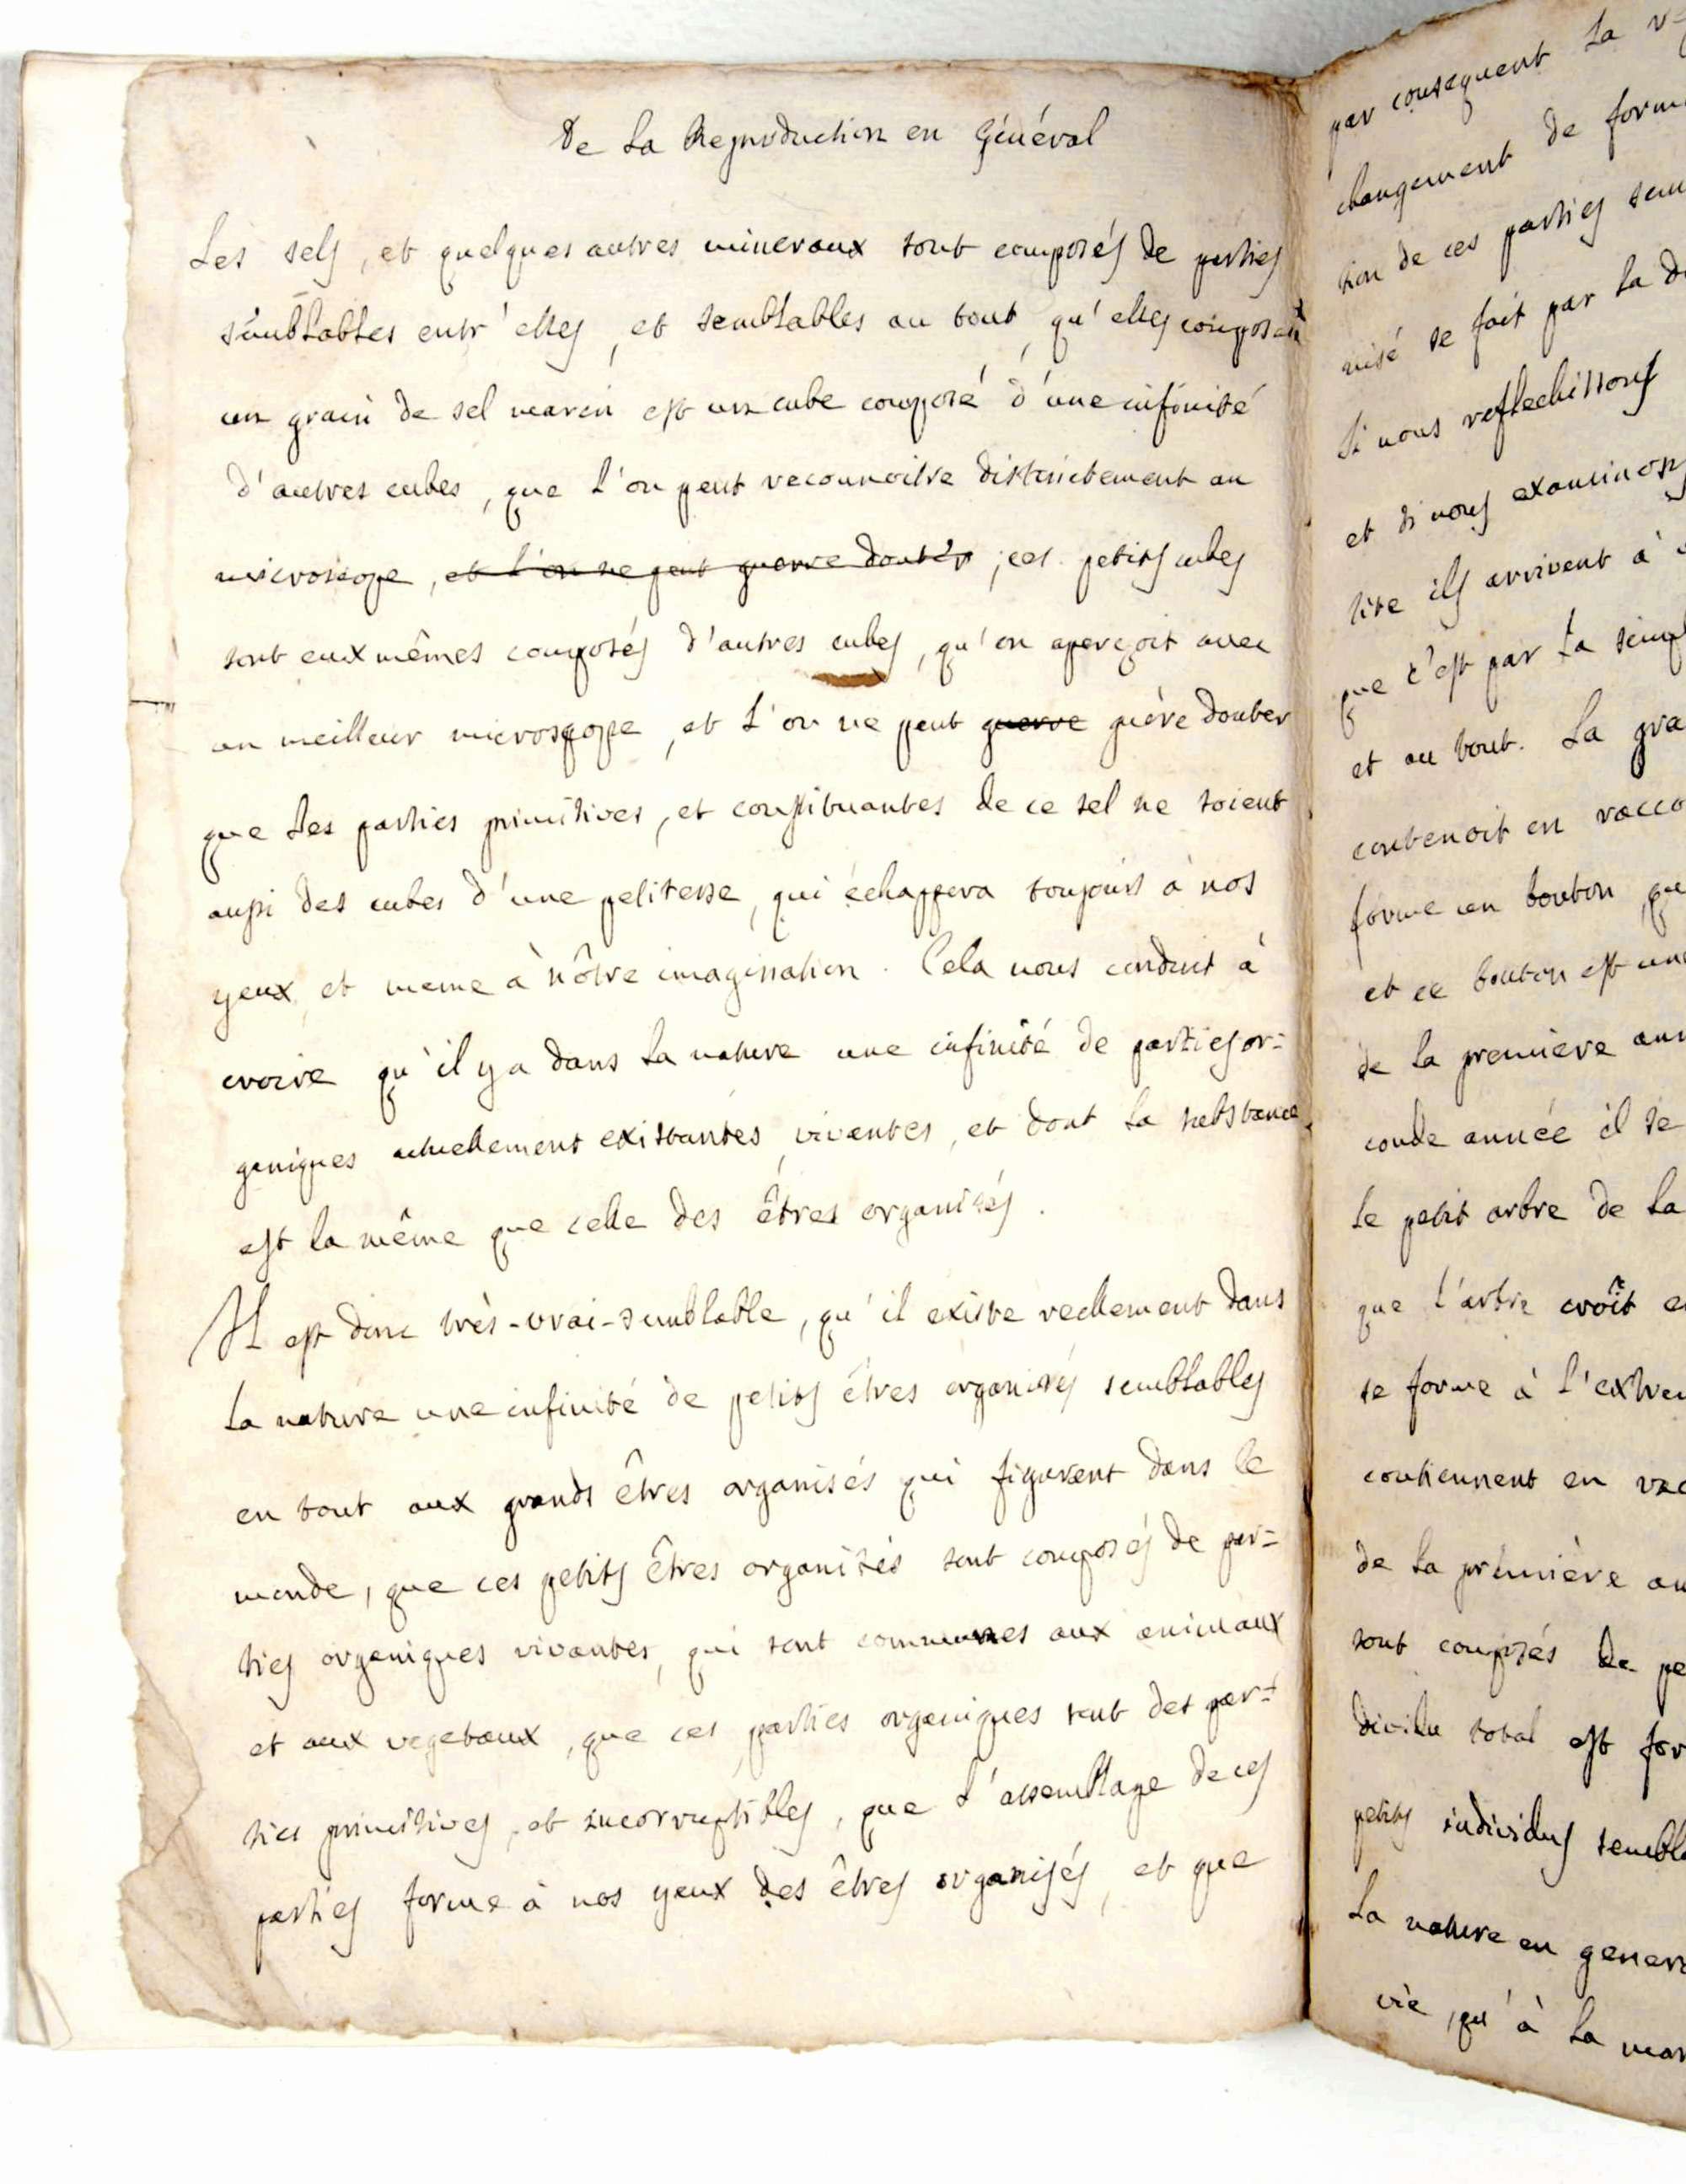 De La Reproduction en Général
Les sels, et quelques autres mineraux sont composés de parties
semblables entr'elles, et semblables au tout, qu'elles composent
un grain de sel marin est un cube composé d'une infinité
d'autres cubes, que l'on peut reconnoitre distinctement au
microscope, et l'on ne peut guerre douter ; ces petits cubes
sont eux mêmes composés d'autres cubes, qu'on aperçoit avec
un meilleur microscope, et l'on ne peut guerre guère douter
que les parties primitives, et constituantes de ce sel ne soient
aussi des cubes d'une petitesse, qui échappera toujours à nos
yeux, et meme à nôtre imagination. Cela nous conduit à
croire qu'il y a dans la nature une infinité de parties or=
ganiques actuellement existantes, vivantes, et dont la substance
est la même que celle des êtres organisés.
Il est donc très-vrai-semblable, qu'il existe reellement dans
la nature une infinité de petits êtres organisés semblables
en tout aux grands êtres organisés qui figurent dans le
monde, que ces petits êtres organisés sont composés de par=
ties organiques vivantes, qui sont communes aux animaux
et aux vegetaux, que ces parties organiques sont des par=
ties primitives, et incorruptibles, que l'assemblage de ces
parties forme à nos yeux des êtres organisés, et que
par consequent la
changement de form
tion de ces parties sem
nisé se fait par la d
Si nous reflechissons
et si nous examinons
tite ils arrivent à
que c'est par la simpl
et au tout. La gra
contenoit en racco
forme un bouton, qu
et ce bouton est un
de la première ann
conde année il se
le petit arbre de la
que l'arbre croît e
se forme à l'extrem
contiennent en rac
de la première an
sont composés de pe
dividu total est for
petits individus sembl
La nature en gener
vie, qu'à la mor